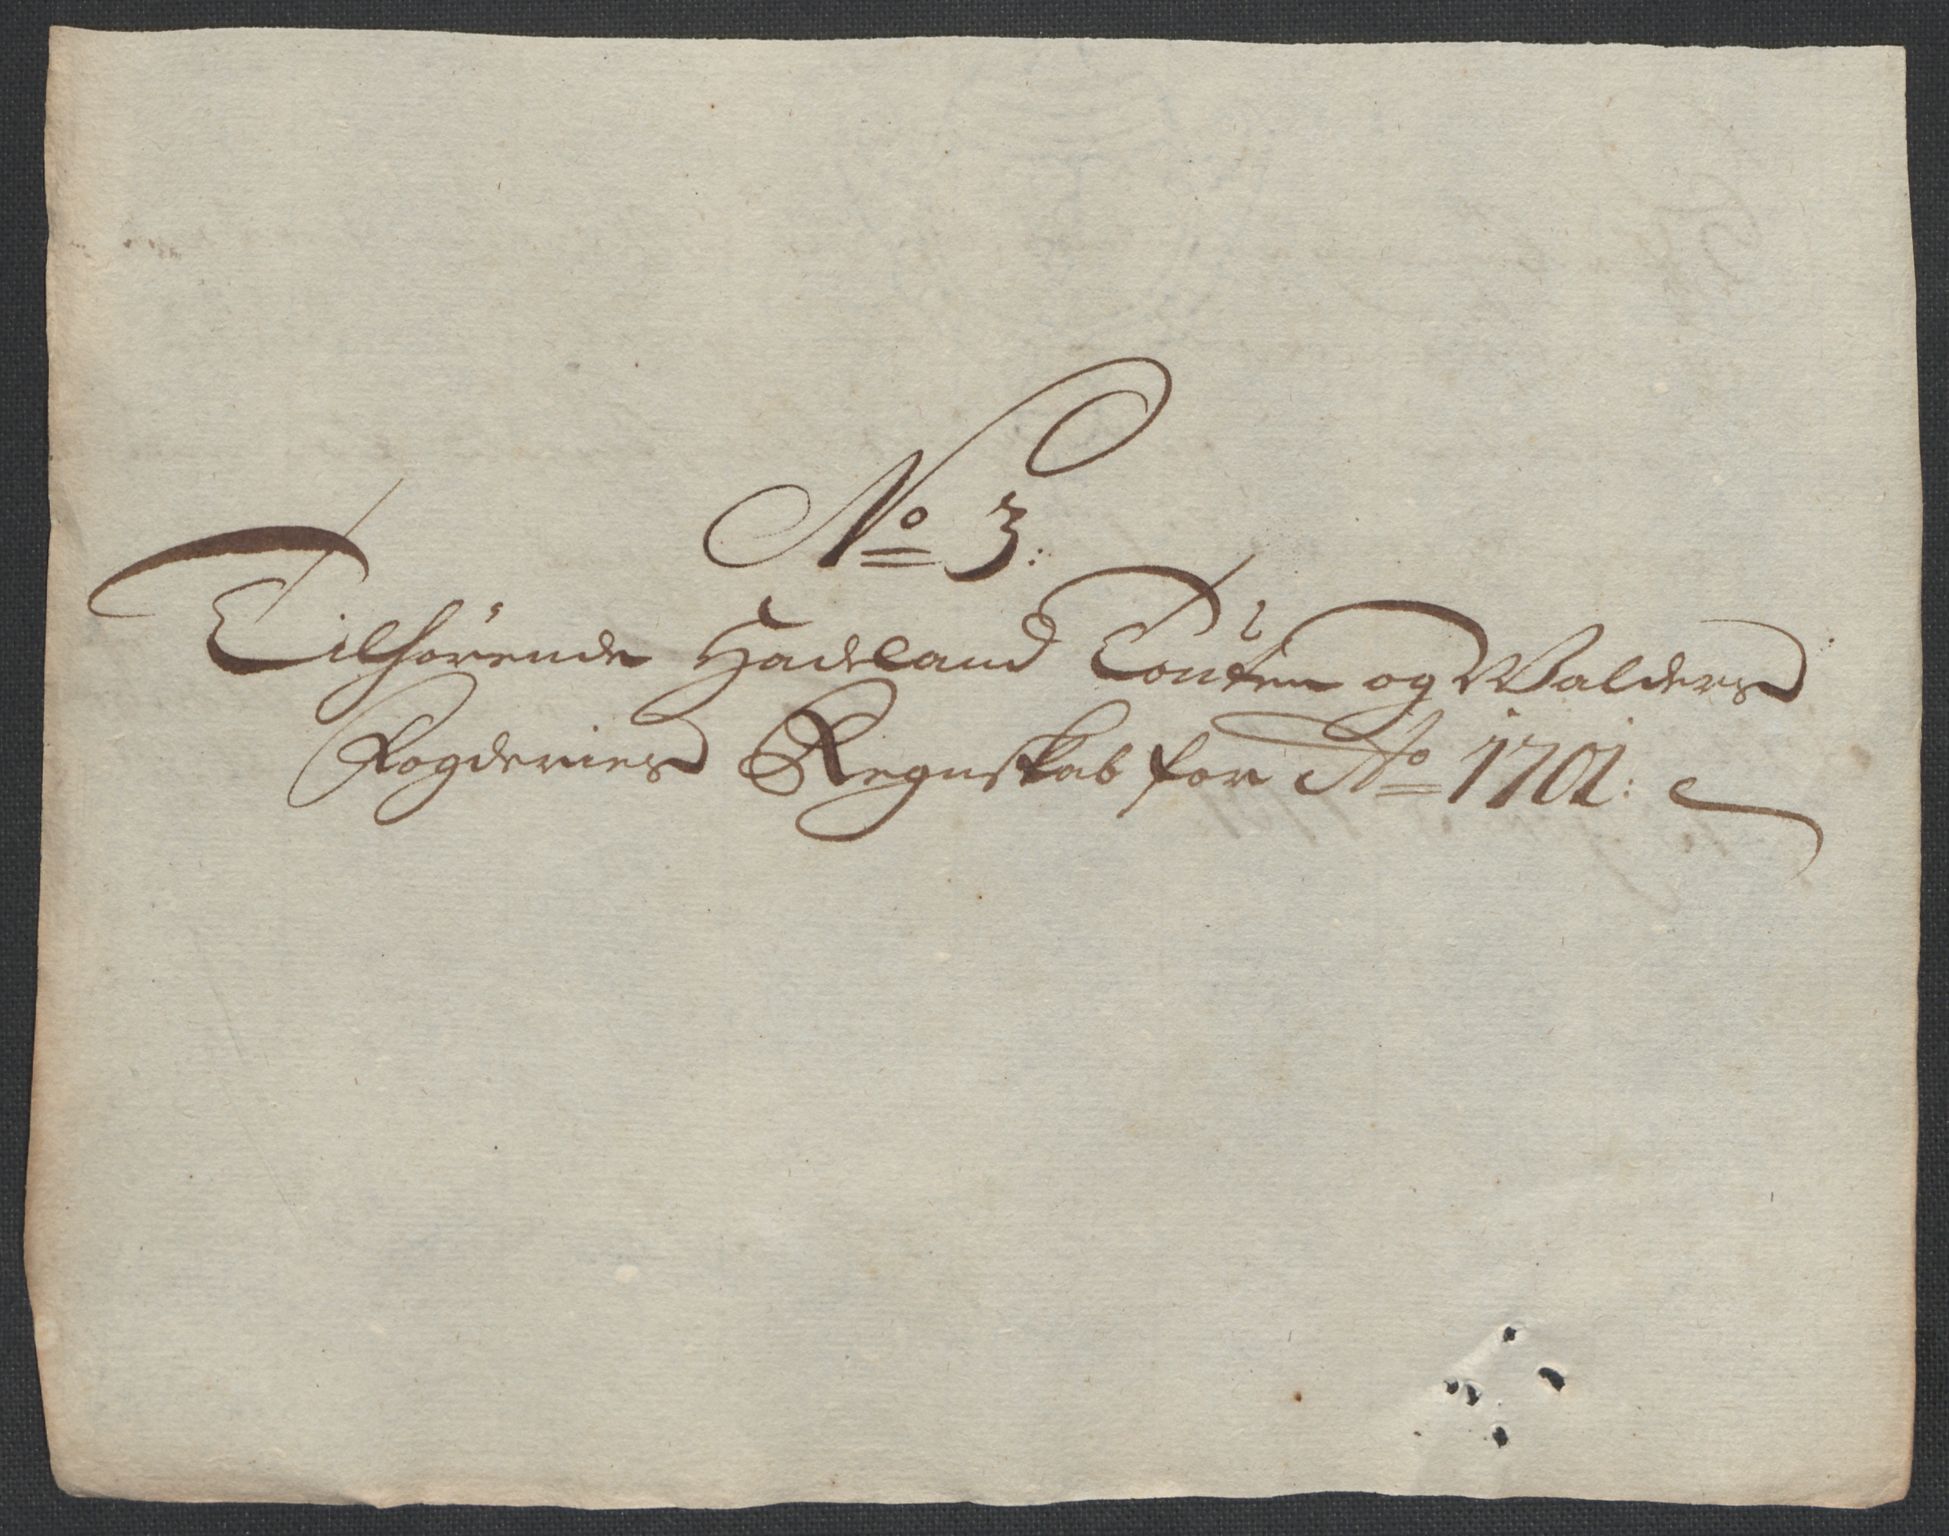 No 3:
Tilhørende Hadeland Toten og Walders
Fogderies Regnskab for Ao 1701: